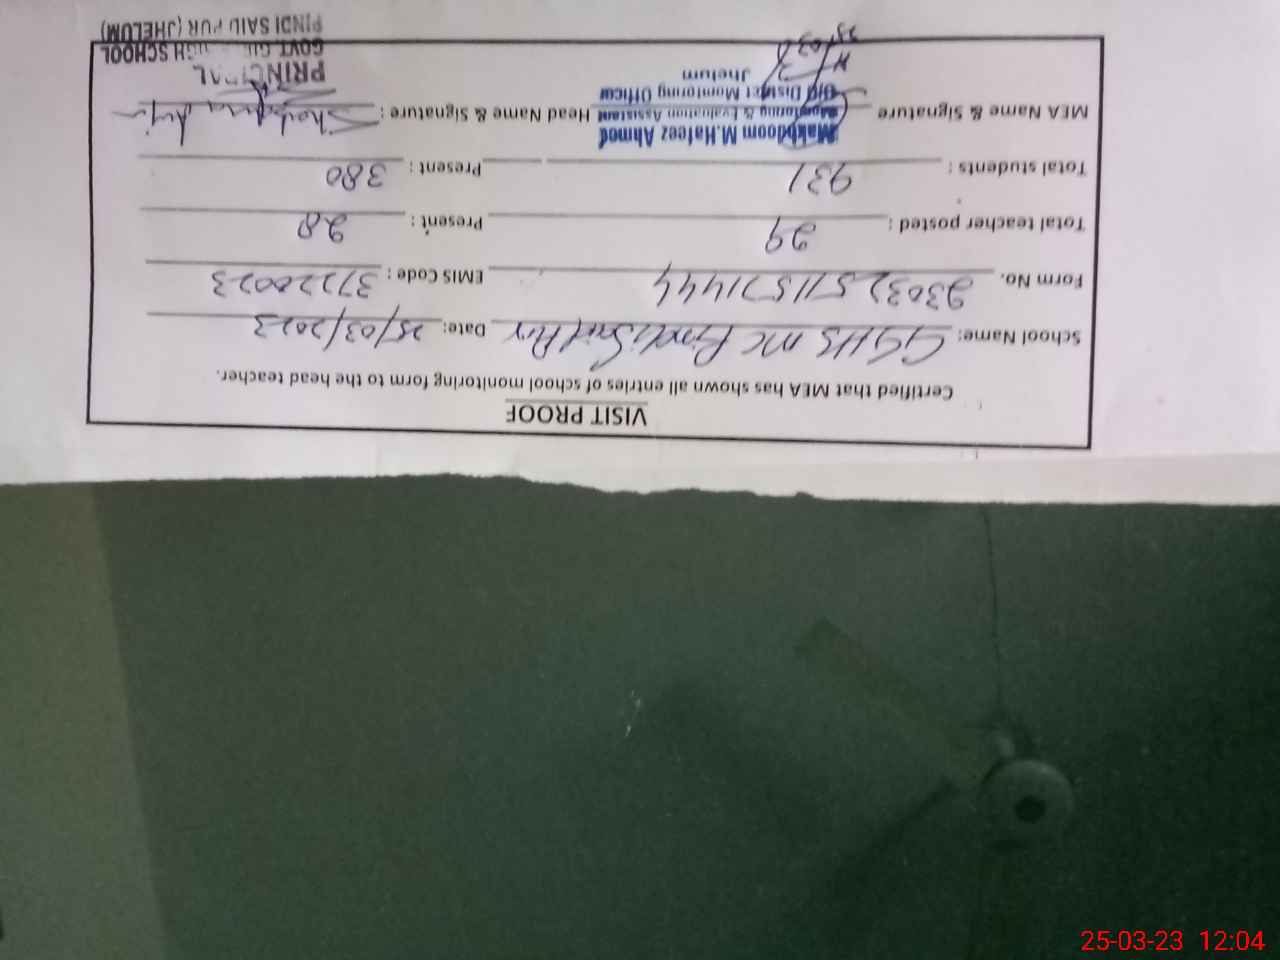 VISIT PROOF
Certified that MEA has shown all entries of school monitoring form to the head teacher.
School Name: GGHS MC Pindi Said Pur Date: 25/03/2023
Form No. 23032511571444 EMIS Code : 37220023
Total teacher posted : 29 Present : 28
Total students : 931 Present : 380
MEA Name & Signature Head Name & Signature :
Makhdoom M.Hafeez Ahmed
Monitoring & Evaluation Assistant
O/O District Monitoring Officer
Jhelum
25/03
PRINCIPAL
GOVT. HIGH SCHOOL
PINDI SAID PUR (JHELUM)
25-03-23 12:04